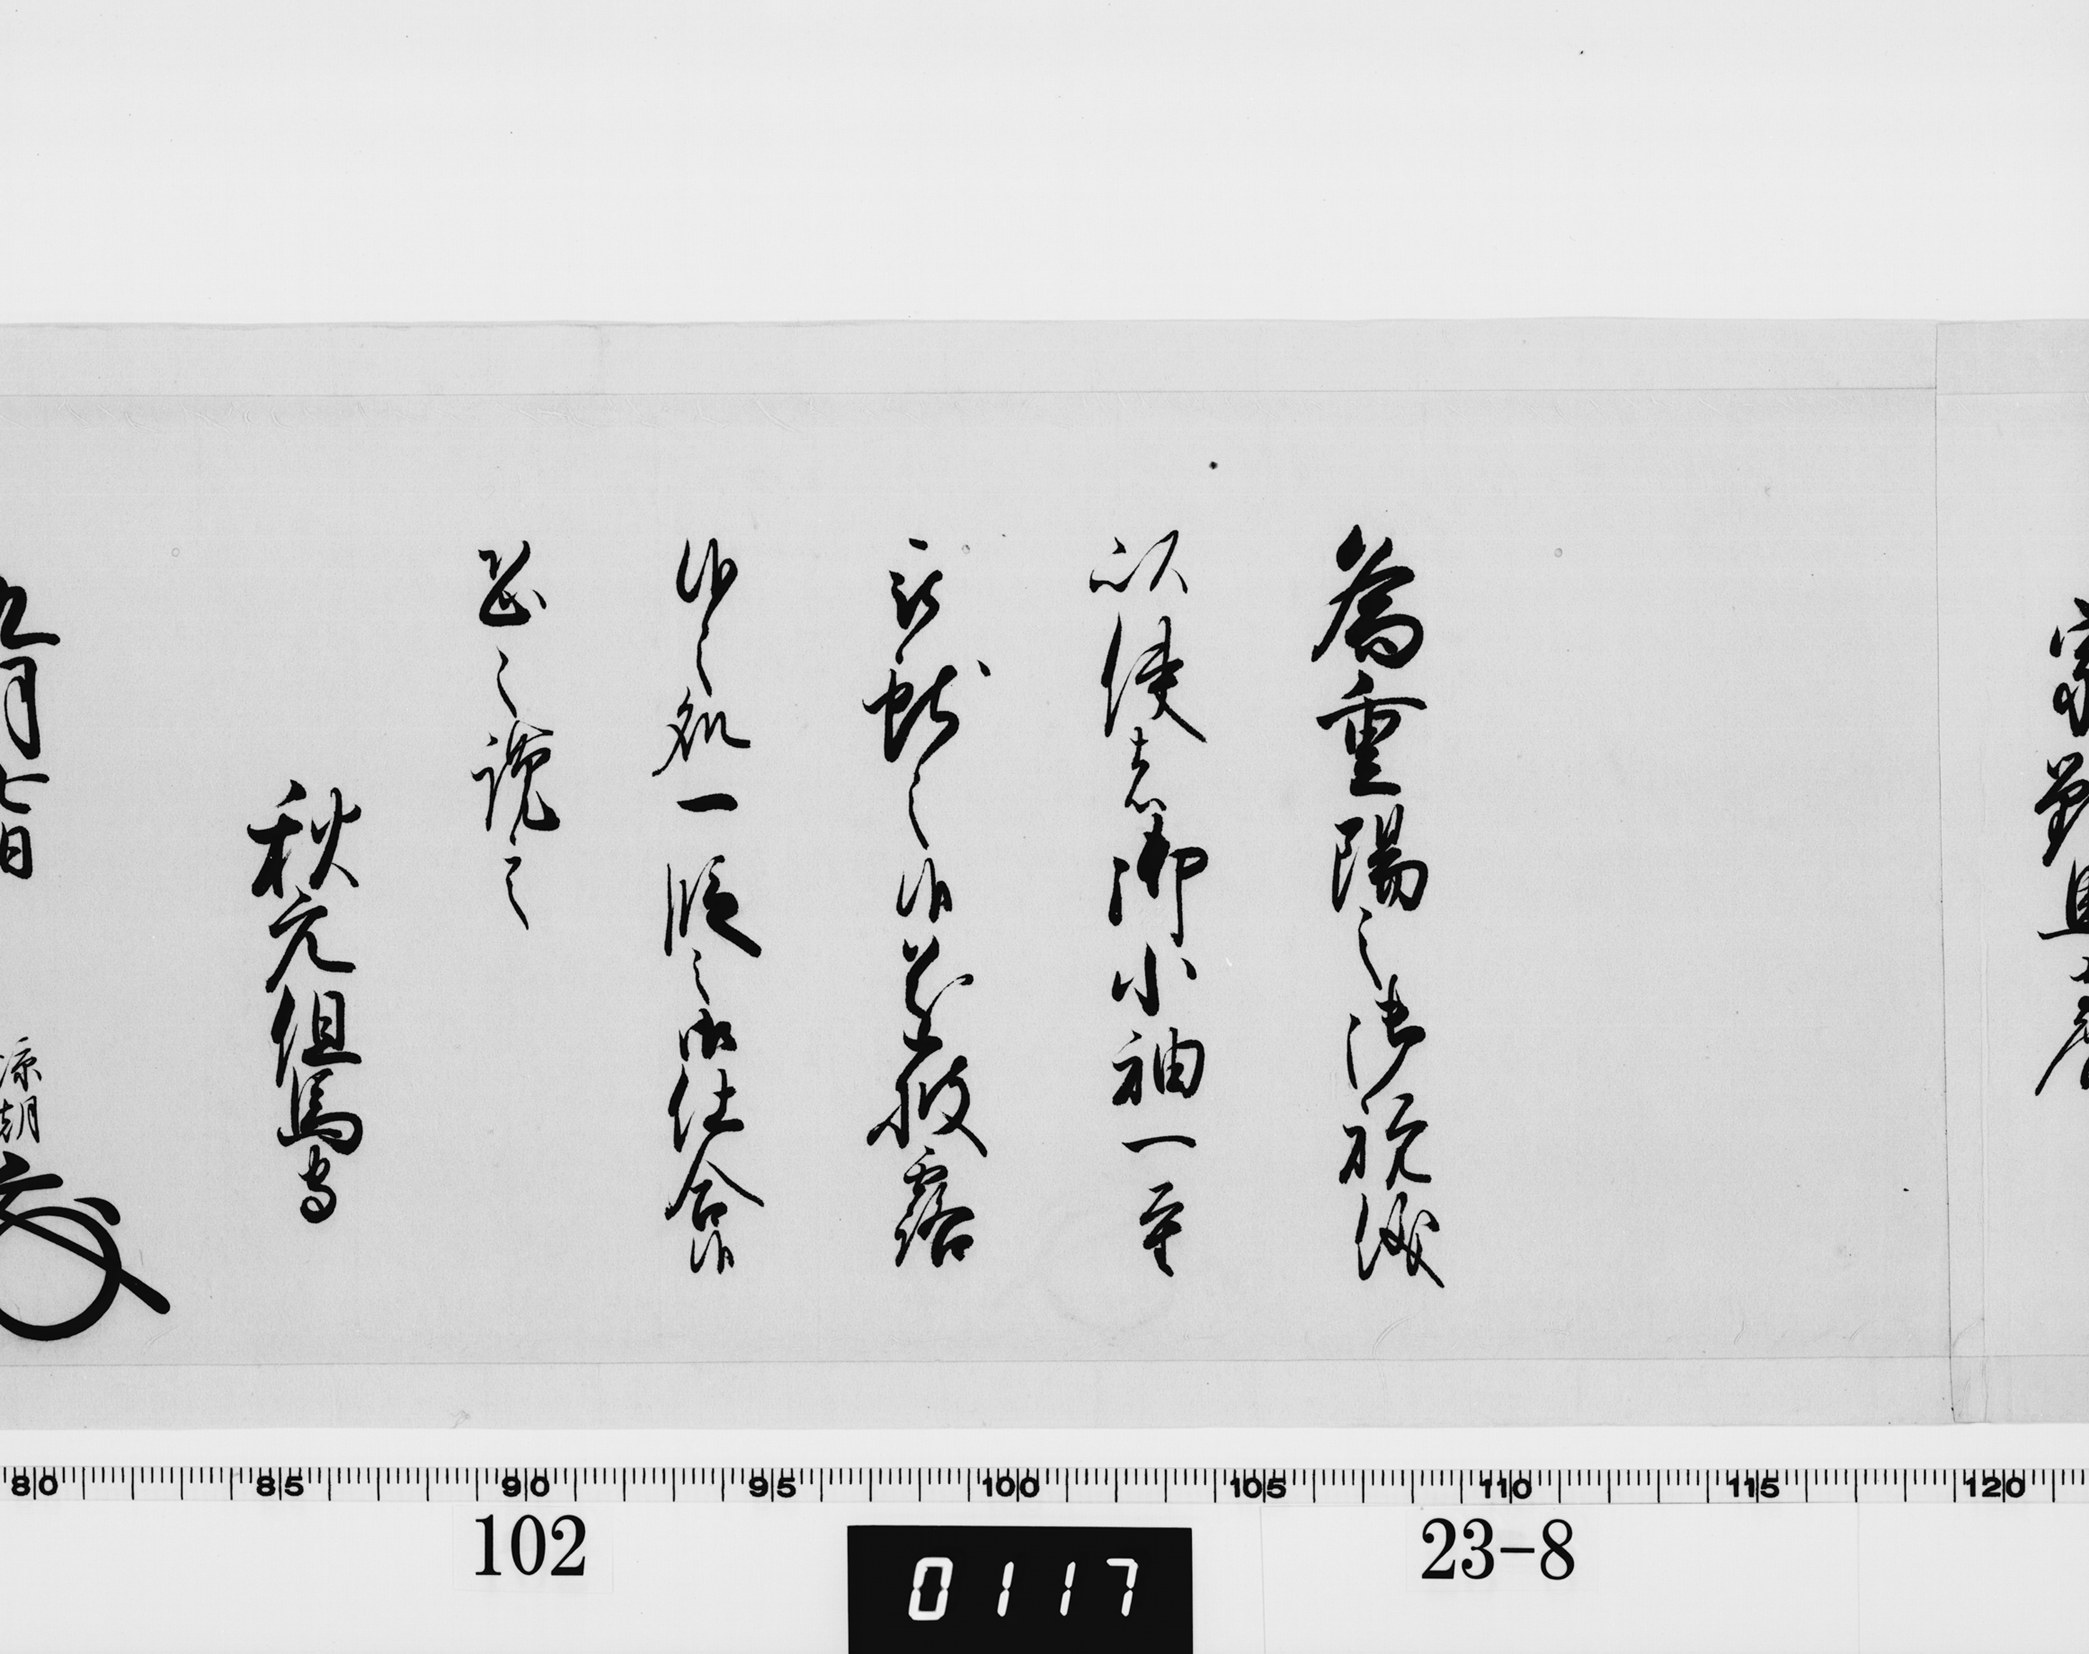 為重陽之御祝儀
以使者御小袖一重
被獻之候遂披露
候之處一段之御仕合候
恐々謹言
秋元但馬守
九月七日
102
0117
23-8
80 85 90 95 100 105 110 115 120